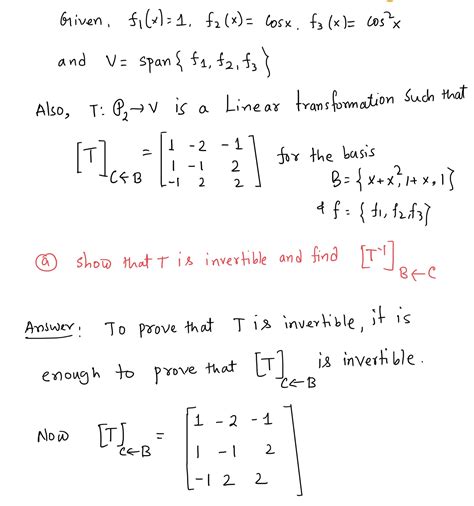 Given, f₁(x)=1, f₂(x)= cosx, f₃(x)= cos²x
and V= span{f₁, f₂, f₃}
Also, T: P₂→V is a Linear transformation such that
[T]C←B = [1 -2 -1
1 -1 2
-1 2 2] for the basis
B={x+x², 1+x, 1}
& f = {f₁, f₂, f₃}
ⓐ show that T is invertible and find [T⁻¹]B←C
Answer: To prove that T is invertible, it is
enough to prove that [T]C←B is invertible.
Now [T]C←B = [1 -2 -1
1 -1 2
-1 2 2]